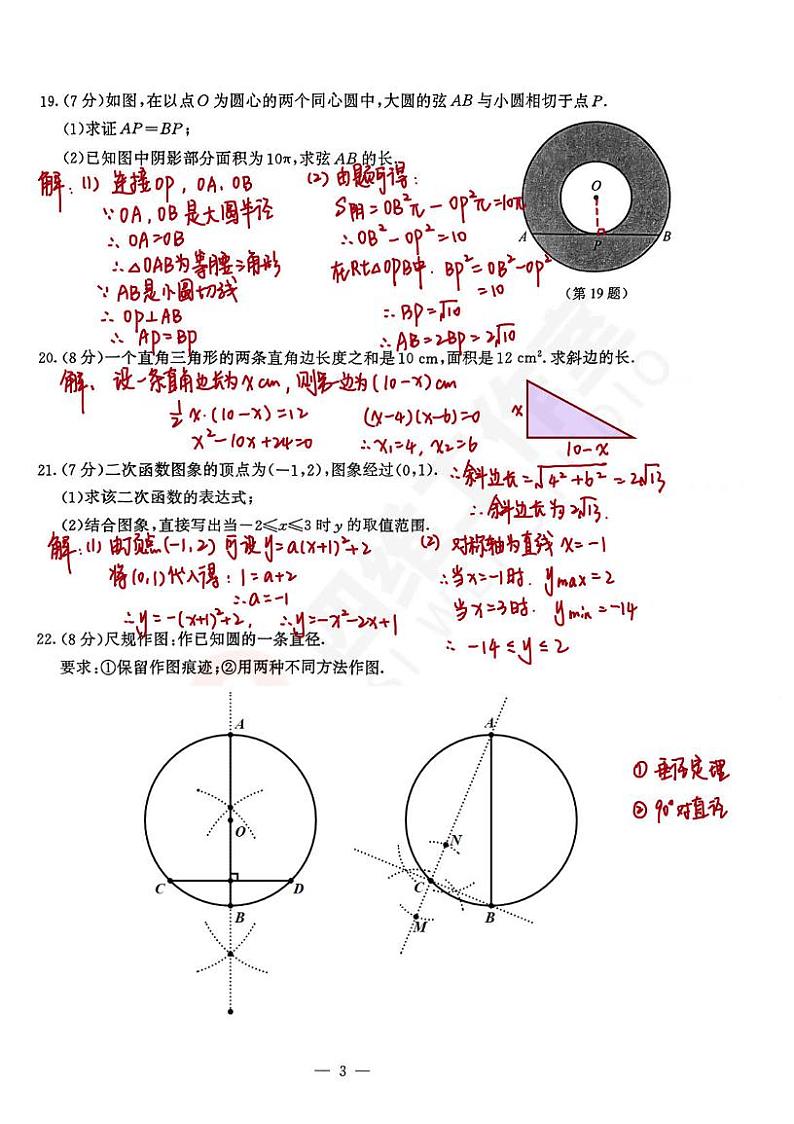 19.(7分)如图,在以点O为圆心的两个同心圆中,大圆的弦AB与小圆相切于点P.
(1)求证AP=BP;
(2)已知图中阴影部分面积为10π,求弦AB的长.
解:(1) 连接OP, OA, OB
∵OA, OB是大圆半径
∴OA=OB
∴△OAB为等腰三角形
∵AB是小圆切线
∴OP⊥AB
∴AP=BP
(2) 由题可得:
S阴=OB²π-OP²π=10π
∴OB²-OP²=10
在Rt△OPB中. BP²=OB²-OP²
=10
∴BP=√10
∴AB=2BP=2√10
O
A
P
B
(第19题)
20.(8分)一个直角三角形的两条直角边长度之和是10 cm,面积是12 cm².求斜边的长.
解、设一条直角边长为xcm, 则另一边为(10-x)cm
½x·(10-x)=12
x²-10x+24=0
(x-4)(x-6)=0
∴x₁=4, x₂=6
x
10-x
∴斜边长=√4²+6²=2√13
∴斜边长为2√13.
21.(7分)二次函数图象的顶点为(-1,2),图象经过(0,1).
(1)求该二次函数的表达式;
(2)结合图象,直接写出当-2≤x≤3时y的取值范围.
解:(1) 由顶点(-1,2)可设y=a(x+1)²+2
将(0,1)代入得:1=a+2
∴a=-1
∴y=-(x+1)²+2, ∴y=-x²-2x+1
(2) 对称轴为直线x=-1
∴当x=-1时. ymax=2
当x=3时. ymin=-14
∴-14≤y≤2
22.(8分)尺规作图:作已知圆的一条直径.
要求:①保留作图痕迹;②用两种不同方法作图.
A
O
C
D
B
A
N
C
B
M
① 垂径定理
② 90°对直径
— 3 —